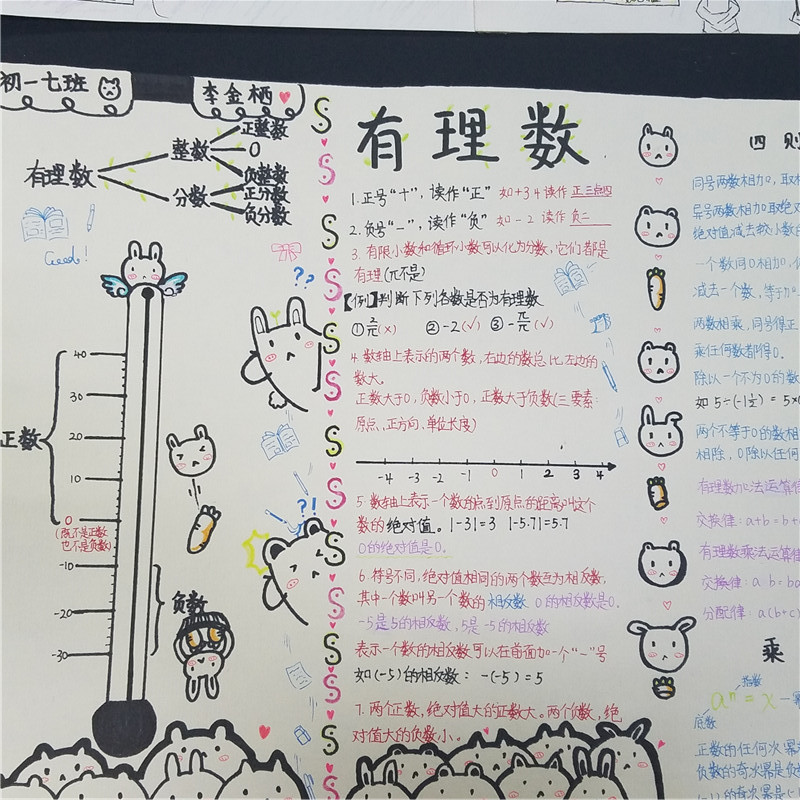 初一七班
李金栖
有理数
整数
分数
正整数
0
负整数
正分数
负分数
Good!
40
30
20
10
0
(既不是正数
也不是负数)
-10
-20
-30
正数
负数
??
?!
有理数
1.正号“+”,读作“正” 如+3.4读作 正三点四
2.负号“-”,读作“负” 如-2 读作 负二
3.有限小数和循环小数可以化为分数,它们都是
有理(π不是)
【例】判断下列各数是否为有理数
①2/π(×) ②-2(√) ③-π/π(√)
4.数轴上表示的两个数,右边的数总比左边的
数大。
正数大于0,负数小于0,正数大于负数(三要素:
原点、正方向、单位长度)
-4 -3 -2 -1 0 1 2 3 4
5.数轴上表示一个数的点到原点的距离叫这个
数的绝对值。|-3|=3 |-5.7|=5.7
0的绝对值是0。
6.符号不同,绝对值相同的两个数互为相反数,
其中一个数叫另一个数的相反数 0的相反数是0.
-5是5的相反数,5是-5的相反数
表示一个数的相反数可以在前面加一个“-”号
如(-5)的相反数:-(-5)=5
7.两个正数,绝对值大的正数大。两个负数,绝
对值大的负数小。
四 则
同号两数相加,取相
异号两数相加取绝对
绝对值减去较小数的
一个数同0相加,仍
减去一个数,等于加
两数相乘,同号得正
乘任何数都得0.
除以一个不为0的数
如 5÷(-1½) = 5×(
两个不等于0的数相
相除,0除以任何
有理数加法运算律
交换律:a+b=b+
有理数乘法运算律
交换律:a·b=ba
分配律:a(b+c)
乘
指数
aⁿ=x
底数
正数的任何次幂
负数的奇次幂是负
(-1)的奇次幂是(-1)